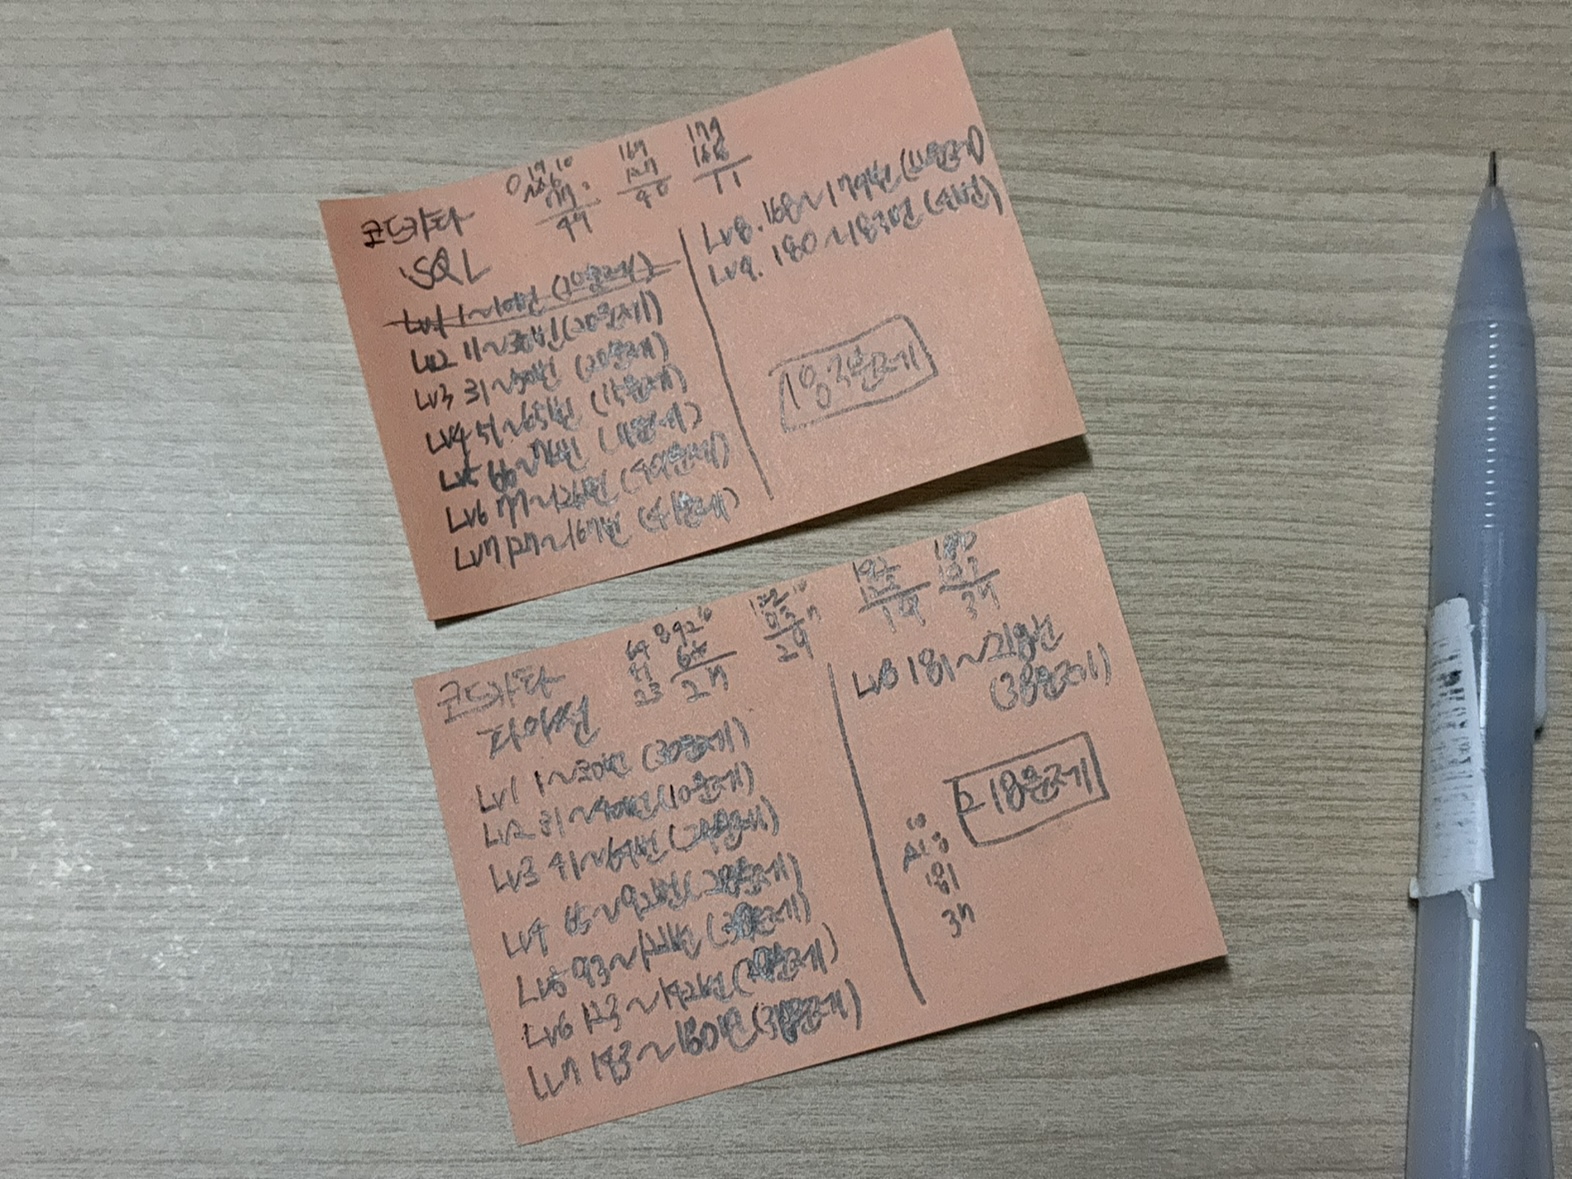 코드카타
SQL
Lv1 1~10번 (10문제)
Lv2 11~30번 (20문제)
Lv3 31~50번 (20문제)
Lv4 51~65번 (15문제)
Lv5 66~76번 (11문제)
Lv6 77~126번 (50문제)
Lv7 127~167번 (41문제)
167
127
40
179
168
11
Lv8. 168~179번 (12문제)
Lv9. 180~183번 (4번)
183문제
코드카타
파이썬
64
41
23
92
65
27
Lv1 1~30번 (30문제)
Lv2 31~40번 (10문제)
Lv3 41~64번 (24문제)
Lv4 65~92번 (28문제)
Lv5 93~122번 (30문제)
Lv6 123~142번 (20문제)
Lv7 143~180번 (38문제)
Lv8 181~218번
(38문제)
218문제
181
37